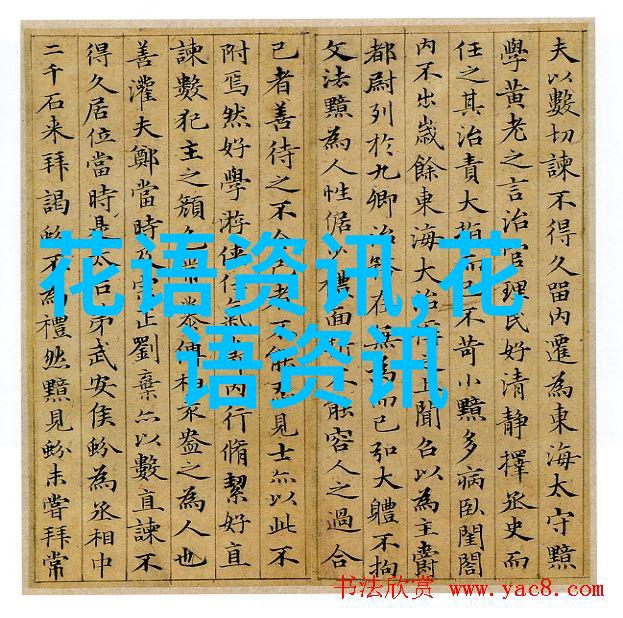 夫以數切諫不得久留內遷為東海太守黯
學黃老之言治官理民好清靜擇丞史而
任之其治責大指而已不苛小黯多病臥閨閤
內不出歲餘東海大治之上聞召以為主爵
都尉列於九卿治務在無為而已弘大體不拘
文法黯為人性倨少禮面折不能容人之過合
己者善待之不合己者不能忍見士亦以此不
附焉然好學游俠任氣節內行脩絜好直
諫數犯主之顏色常慕傅柏袁盎之為人也
善灌夫鄭當時及宗正劉棄亦以數直諫不
得久居位當時是太后弟武安侯蚡為丞相中
二千石來拜謁蚡不為禮然黯見蚡未嘗拜常
花语资讯,花
语资讯
书法欣赏 www.yac8.com